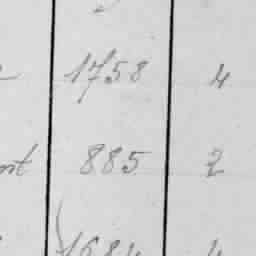 1758 4
885 2
1684 4